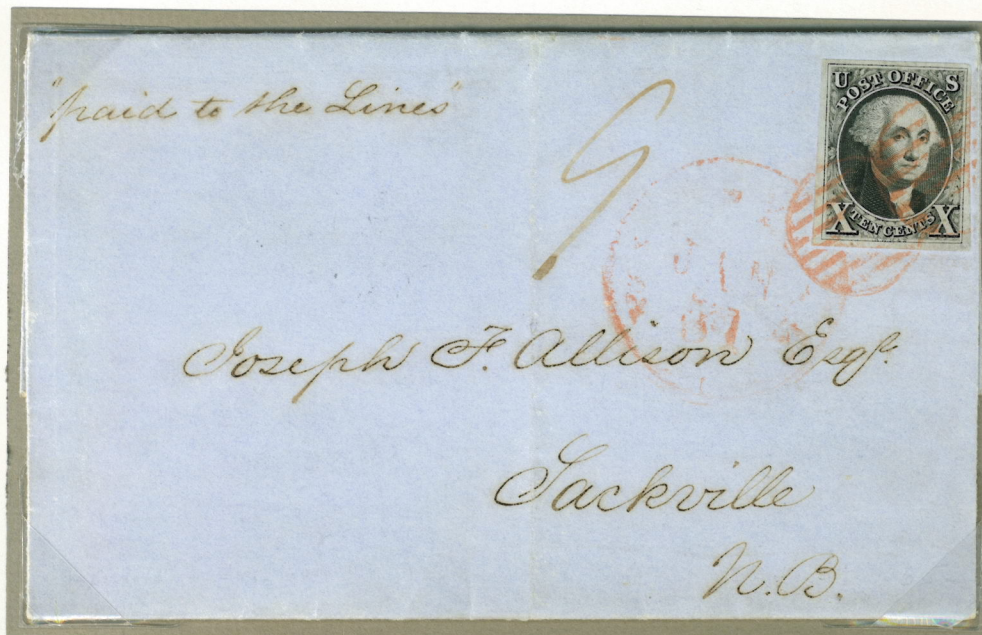 "paid to the Lines"
U S
POST OFFICE
X TEN CENTS X
9
Joseph F. Allison Esqr.
Sackville
N.B.